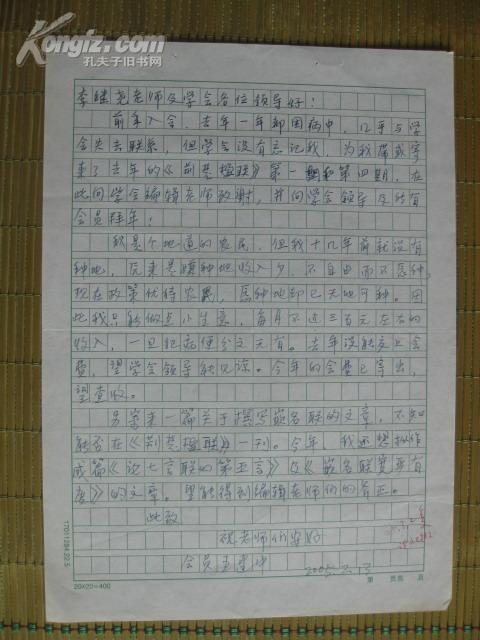 Kongfz.com
孔夫子旧书网
李继尧老师及学会各位领导好：
前年入会，去年一年都因病中，几乎与学
会失去联系，但学会没有忘记我，为我
来了去年的《荆楚楹联》第一期和第四期，在
此向学会编辑老师致谢，并向学会领导及所有
会员拜年！
我是个地道的农民，但我十几年前就没有
种地，原来是嫌种地收入少，不自由而不愿种，
现在政策优待农民，愿种地却已无地可种。因
此我只能做点小生意，每月不过三百元左右的
收入，一旦犯病便分文无有。去年没能交上会
费，望学会领导能见谅。今年的会费已寄出，
望查收。
另寄来一篇关于撰写嵌名联的文章，不知
能否在《荆楚楹联》一刊。今年，我还想拟作
成篇《说七言联的第五言》及《嵌名联贵要有
度》的文章。望能得到编辑老师们的斧正。
此致
祝老师们安好
会员
2005.2.13
17011294.22.5
20×20=400
第 页共 页